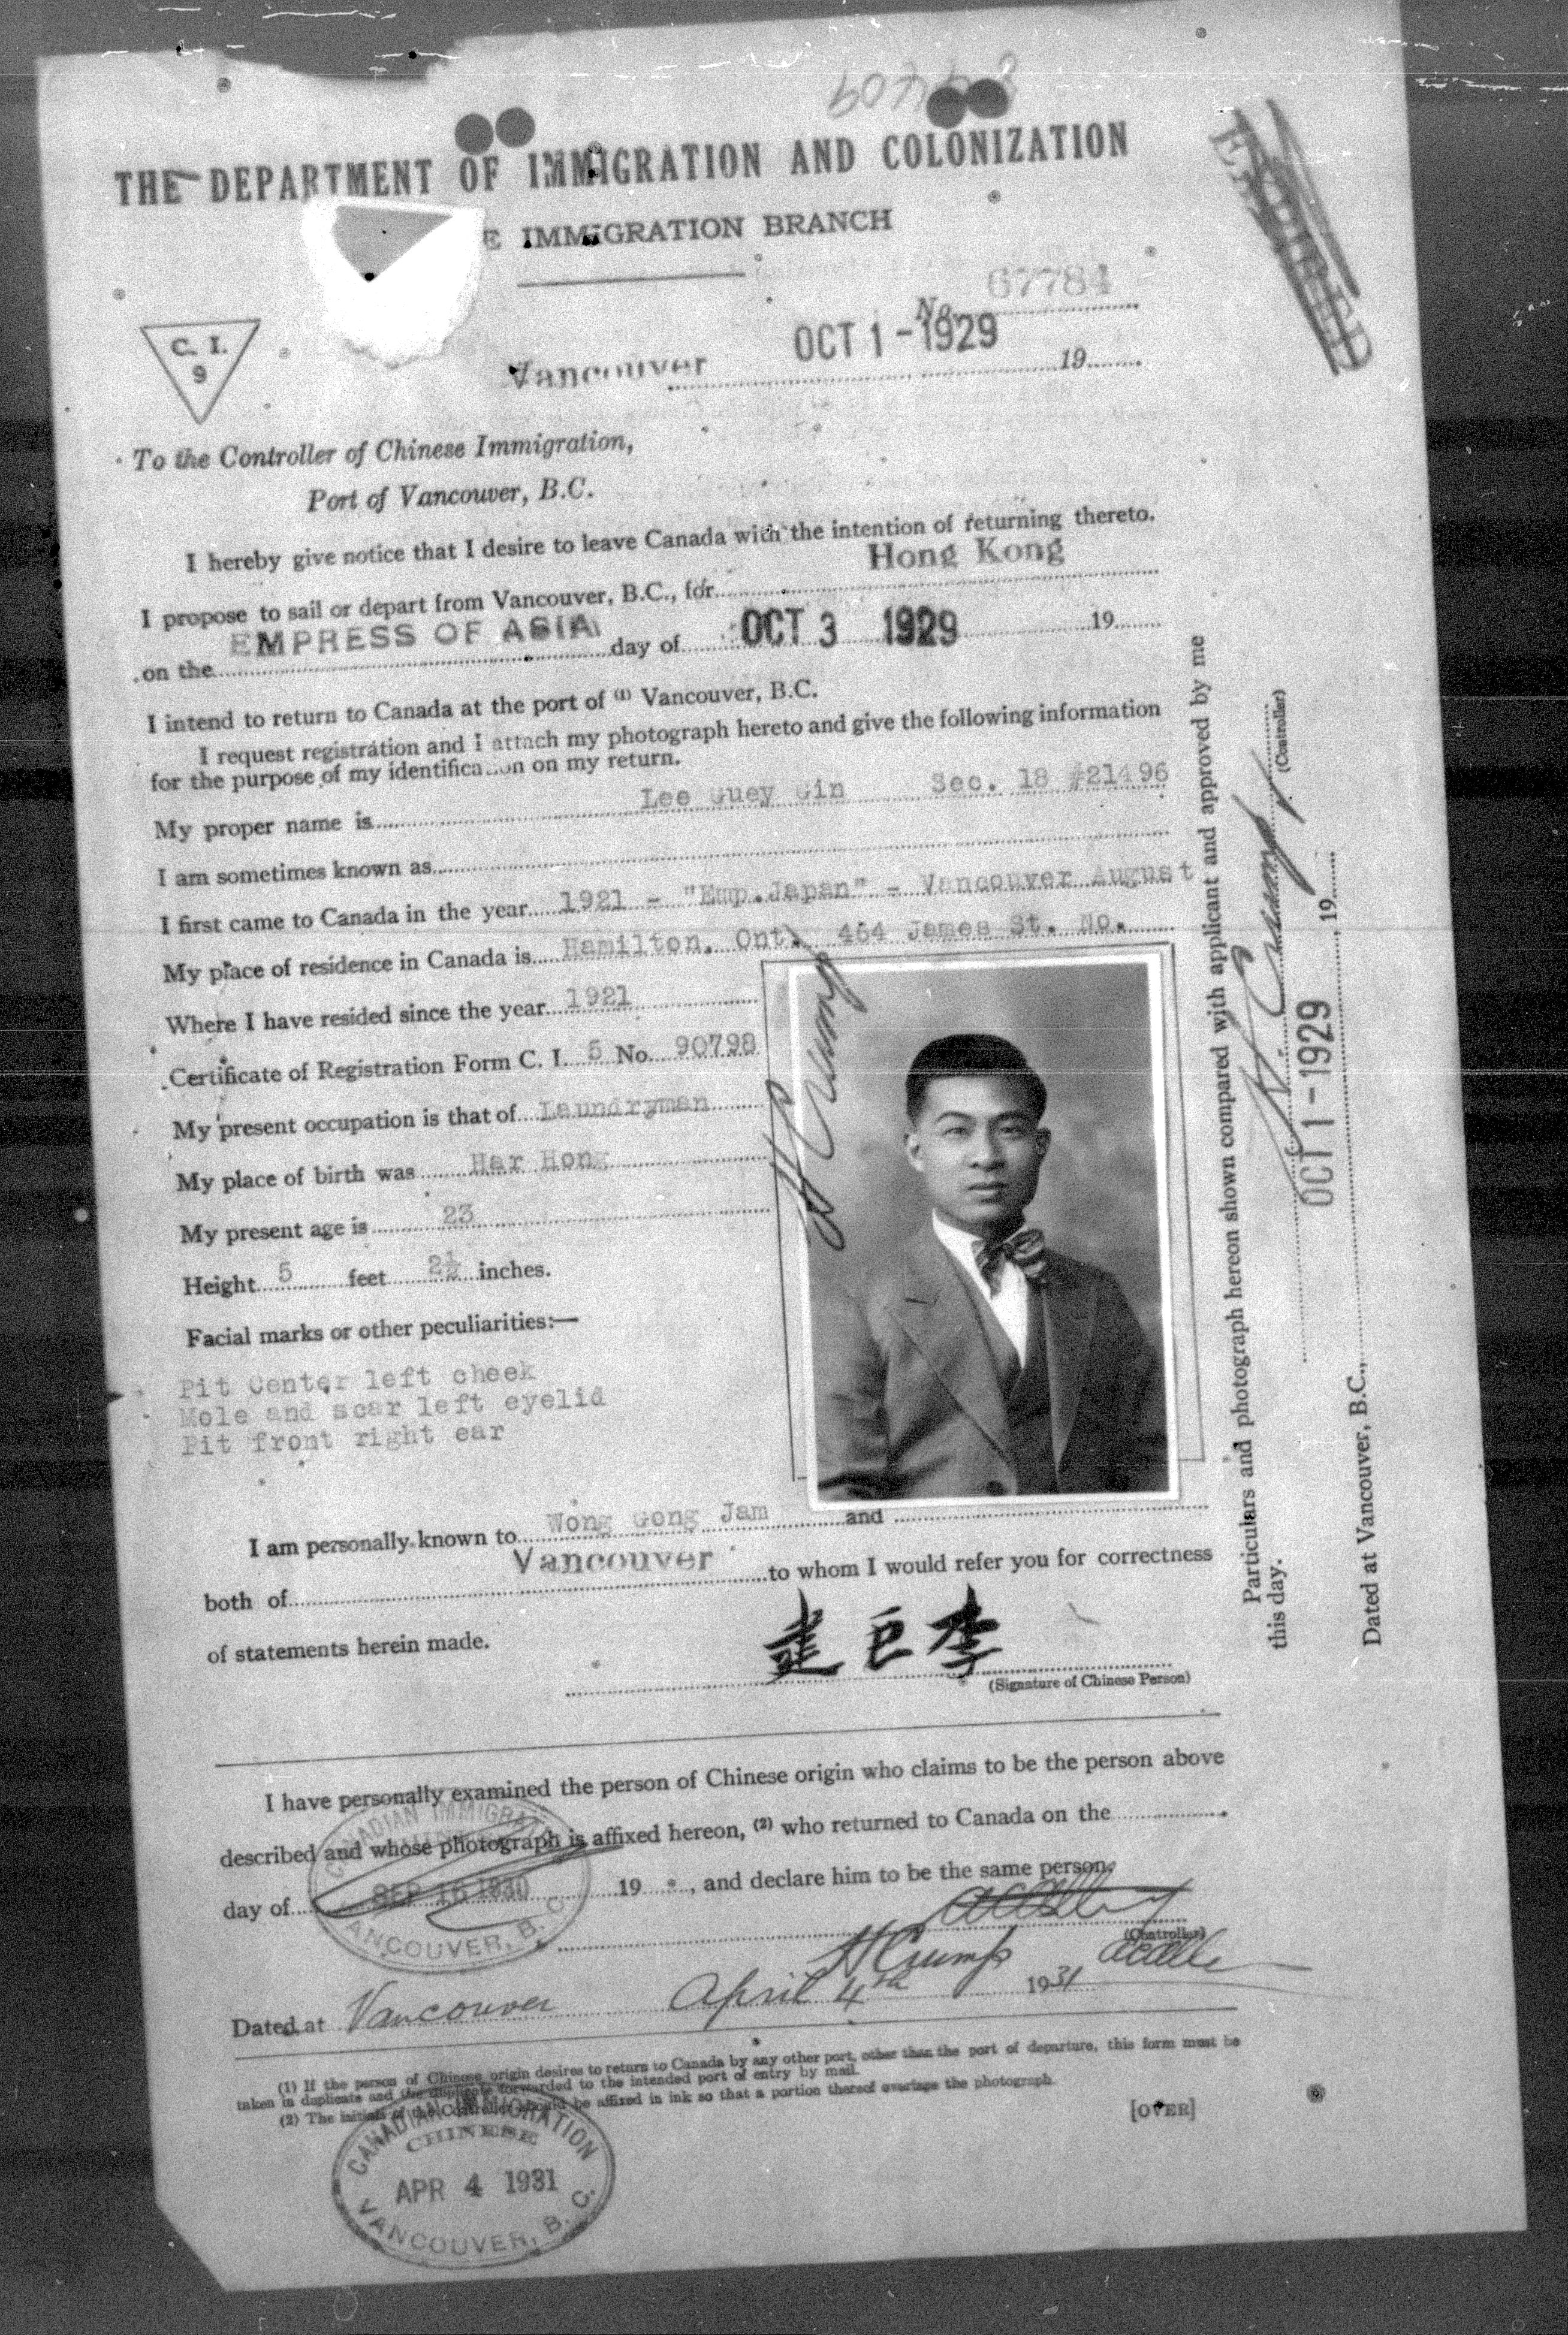 THE DEPARTMENT OF IMMIGRATION AND COLONIZATION
E IMMIGRATION BRANCH
EXPIRED
No. 67784
C. I.
9
Vancouver OCT 1 - 1929 19
To the Controller of Chinese Immigration,
Port of Vancouver, B.C.
I hereby give notice that I desire to leave Canada with the intention of returning thereto.
I propose to sail or depart from Vancouver, B.C., for Hong Kong
on the EMPRESS OF ASIA day of OCT 3 1929 19
I intend to return to Canada at the port of (1) Vancouver, B.C.
I request registration and I attach my photograph hereto and give the following information
for the purpose of my identification on my return.
My proper name is Lee Guey Gin Sec. 18 #21496
I am sometimes known as
I first came to Canada in the year 1921 - "Emp.Japan" - Vancouver August
My place of residence in Canada is Hamilton, Ont. 464 James St. No.
Where I have resided since the year 1921
Certificate of Registration Form C. I. 5 No. 90798
My present occupation is that of Laundryman
My place of birth was Har Hong
My present age is 23
Height 5 feet 2½ inches.
Facial marks or other peculiarities:—
Pit Center left cheek
Mole and scar left eyelid
Pit front right ear
H Crump
I am personally known to Wong Gong Jam and
both of Vancouver to whom I would refer you for correctness
of statements herein made.
李巨
(Signature of Chinese Person)
Particulars and photograph hereon shown compared with applicant and approved by me
this day.
H. Crump
(Controller)
OCT 1 - 1929
Dated at Vancouver, B.C., 19
I have personally examined the person of Chinese origin who claims to be the person above
described and whose photograph is affixed hereon, (2) who returned to Canada on the
day of 19 , and declare him to be the same person.
CANADIAN IMMIGRATION
SEP 16 1930
VANCOUVER, B. C.
(Controller)
H Crump
Dated at Vancouver April 4th 1931
(1) If the person of Chinese origin desires to return to Canada by any other port, other than the port of departure, this form must be
taken in duplicate and the duplicate forwarded to the intended port of entry by mail.
(2) The initials of the Controller should be affixed in ink so that a portion thereof overlaps the photograph.
[OVER]
CANADIAN IMMIGRATION
CHINESE
APR 4 1931
VANCOUVER, B. C.